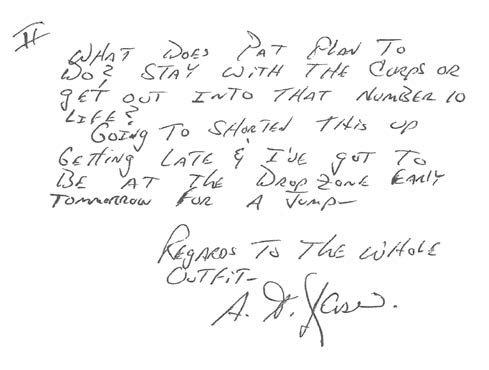 II
WHAT DOES PAT PLAN TO
DO? STAY WITH THE CORPS OR
GET OUT INTO THAT NUMBER 10
LIFE?
GOING TO SHORTEN THIS UP
GETTING LATE & I'VE GOT TO
BE AT THE DROP ZONE EARLY
TOMMORROW FOR A JUMP-
REGARDS TO THE WHOLE
OUTFIT-
A. D.